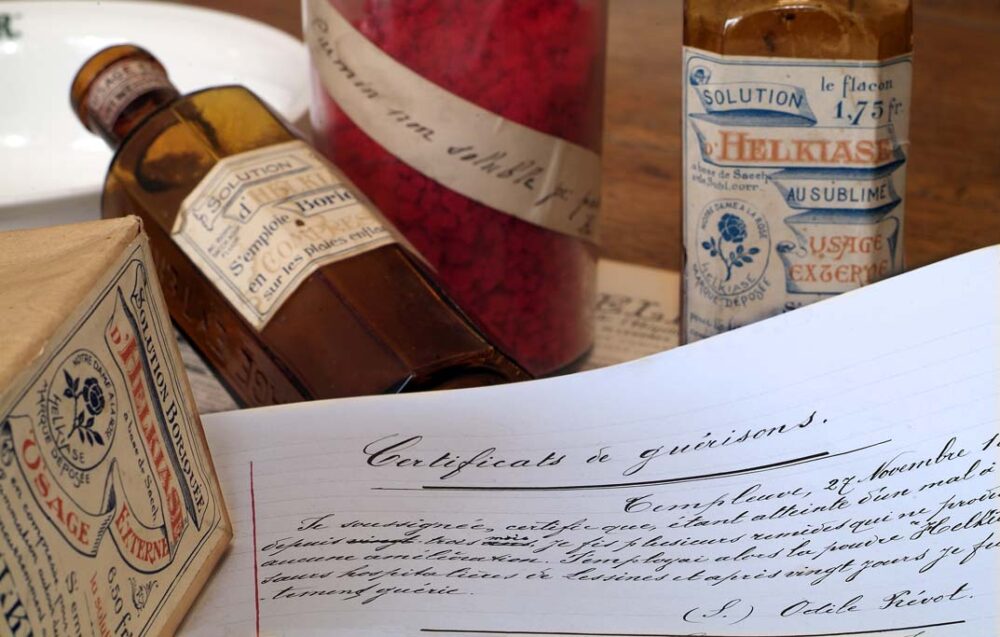 USAGE
SOLUTION
d'HELKIASE
Boriq
S'emploie
en COMPRES
sur les plaies enfla
Carmin non soluble
SOLUTION
le flacon
1,75 fr
d'HELKIASE
à base de Sacch
AU SUBLIMÉ
NOTRE DAME A LA ROSE
HELKIASE
MARQUE DÉPOSÉE
USAGE
EXTERNE
SOLUTION BORIQUÉE
d'HELKIASE
à base de Sacch
NOTRE DAME A LA ROSE
HELKIASE
MARQUE DÉPOSÉE
USAGE
EXTERNE
6,50 fr
Certificats de guérisons.
Templeuve, 27 Novembre 1
Je soussignée, certifie que, étant atteinte d'un mal à
depuis vingt trois mois, je fis plusieurs remèdes qui ne produ
aucune amélioration. J'employai alors la poudre "Helki
sœurs hospitalières de Lessines et après vingt jours je fu
tement guérie.
(S.) Odile Prévot.